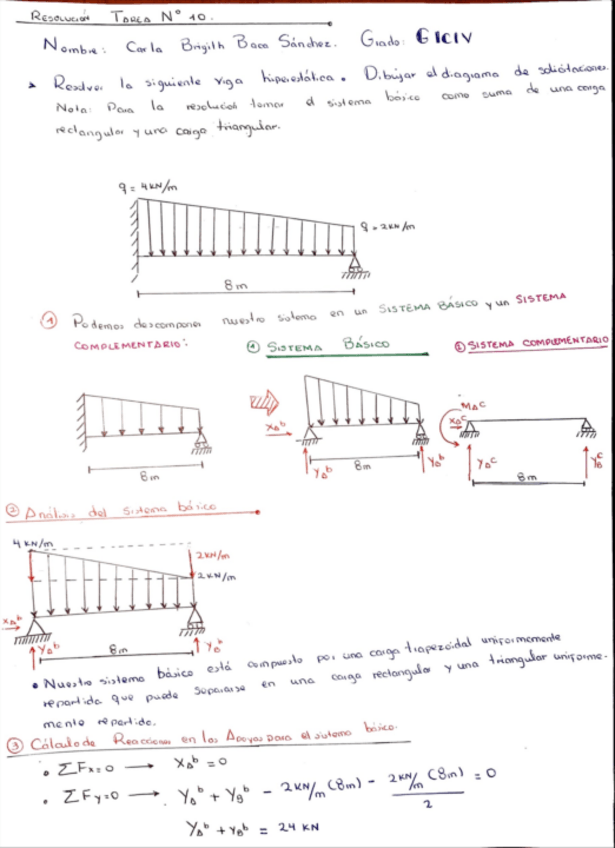 RESOLUCIÓN TAREA N° 10.
Nombre: Carla Brigith Baca Sánchez. Grado: G1CIV
Resolver la siguiente viga hiperestática. Dibujar el diagrama de solicitaciones.
Nota: Para la resolución tomar el sistema básico como suma de una carga
rectangular y una carga triangular.
q = 4 kN/m
q = 2 kN/m
8 m
① Podemos descomponer nuestro sistema en un SISTEMA BÁSICO y un SISTEMA
COMPLEMENTARIO:
① SISTEMA BÁSICO
② SISTEMA COMPLEMENTARIO
8 m
XAᵇ
YAᵇ
8m
YBᵇ
MAC
XAᶜ
YAᶜ
8m
YBᶜ
② Análisis del sistema básico
4 kN/m
2 kN/m
2 kN/m
XAᵇ
YAᵇ
8m
YBᵇ
• Nuestro sistema básico está compuesto por una carga trapezoidal uniformemente
repartida que puede separarse en una carga rectangular y una triangular uniforme-
mente repartida.
③ Cálculo de Reacciones en los Apoyos para el sistema básico.
• ΣFx=0 → XAᵇ = 0
• ΣFy=0 → YAᵇ + YBᵇ - 2kN/m (8m) - 2kN/m (8m) / 2 = 0
YAᵇ + YBᵇ = 24 kN